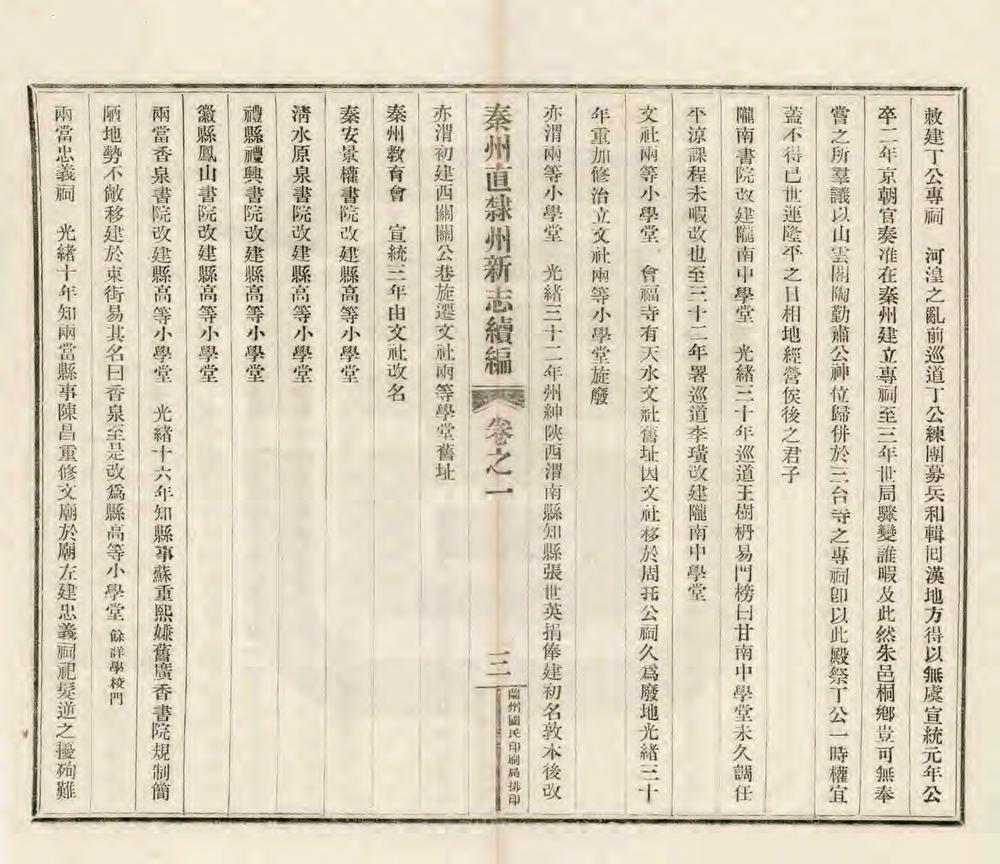 敕建丁公專祠　河湟之亂前巡道丁公練團募兵和輯回漢地方得以無虞宣統元年公
卒二年京朝官奏准在秦州建立專祠至三年世局驟變誰暇及此然朱邑桐鄉豈可無奉
嘗之所羣議以山雲閣陶勤肅公神位歸併於三台寺之專祠卽以此殿祭丁公一時權宜
蓋不得已世運隆平之日相地經營俟後之君子
隴南書院改建隴南中學堂　光緒三十年巡道王樹枬易門榜曰甘南中學堂未久調任
平涼課程未暇改也至三十二年署巡道李璜改建隴南中學堂
文社兩等小學堂　會福寺有天水文社舊址因文社移於周托公祠久爲廢地光緒三十
年重加修治立文社兩等小學堂旋廢
亦渭兩等小學堂　光緒三十二年州紳陝西渭南縣知縣張世英捐俸建初名敦本後改
秦州直隸州新志續編　卷之一　三　蘭州國民印刷局排印
亦渭初建西關關公巷旋遷文社兩等學堂舊址
秦州教育會　宣統三年由文社改名
秦安景權書院改建縣高等小學堂
清水原泉書院改建縣高等小學堂
禮縣禮興書院改建縣高等小學堂
徽縣鳳山書院改建縣高等小學堂
兩當香泉書院改建縣高等小學堂　光緒十六年知縣事蘇重熙嫌舊廣香書院規制簡
陋地勢不敞移建於東街易其名曰香泉至是改爲縣高等小學堂 餘詳學校門
兩當忠義祠　光緒十年知兩當縣事陳昌重修文廟於廟左建忠義祠祀髮逆之擾殉難